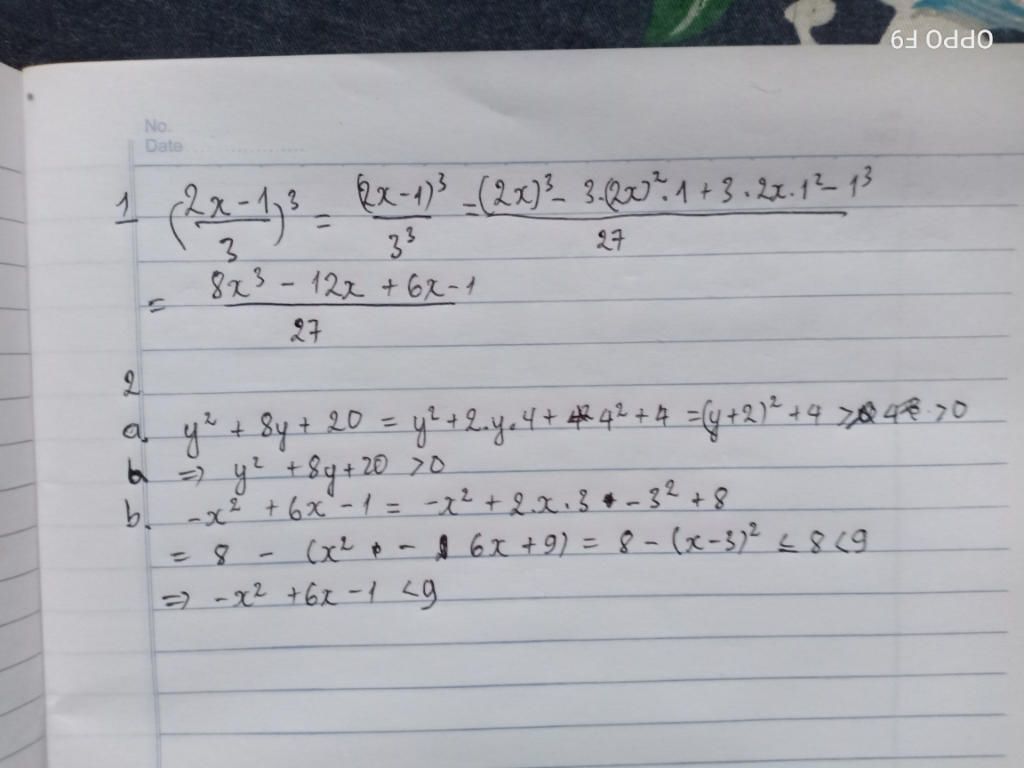 OPPO F9
No.
Date
1 (2x-1/3)³ = (2x-1)³/3³ = (2x)³ - 3.(2x)².1 + 3.2x.1² - 1³/27
= 8x³ - 12x + 6x - 1/27
2
a y² + 8y + 20 = y² + 2.y.4 + 4² + 4 = (y+2)² + 4 > 0
⇒ y² + 8y + 20 > 0
b. -x² + 6x - 1 = -x² + 2.x.3 - 3² + 8
= 8 - (x² - 6x + 9) = 8 - (x-3)² ≤ 8 < 9
⇒ -x² + 6x - 1 < 9